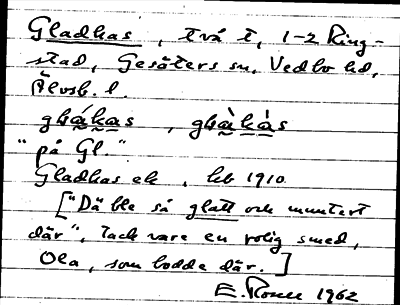 Gladhas, två t, 1-2 Ring-
stad, Gesäters sn, Vedbo hd,
Älvsb. l.
"på Gl."
Gladhas ek, hb 1910
["Då ble så glatt och muntert
där", tack vare en rolig smed,
Ola, som bodde där.]
1962